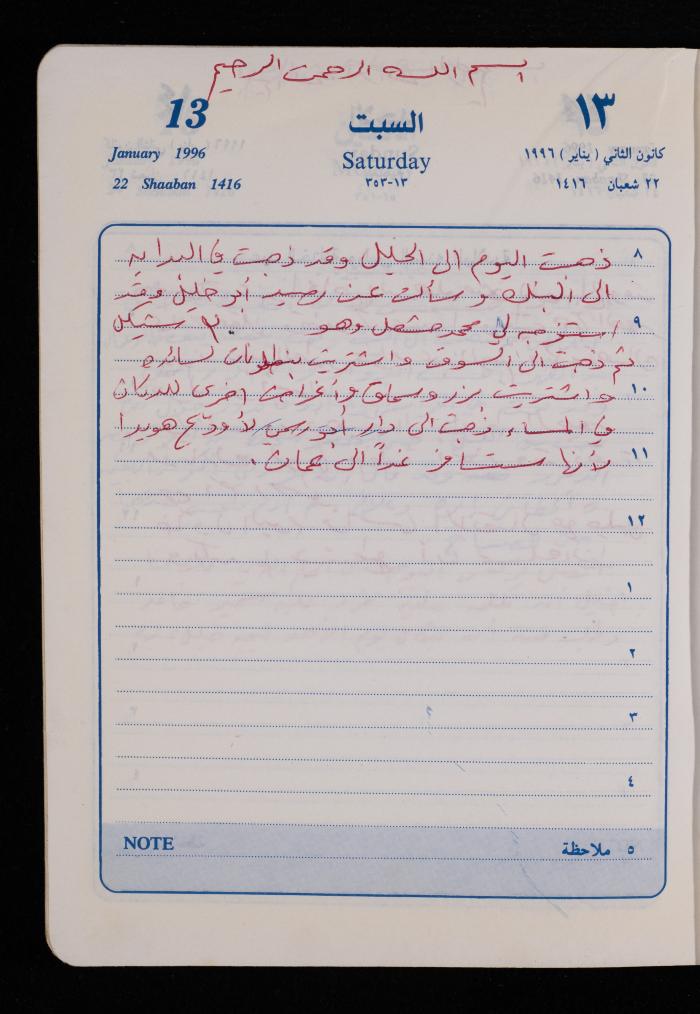 بسم الله الرحمن الرحيم
13 السبت ١٣
January 1996 Saturday كانون الثاني ( يناير ) ١٩٩٦
22 Shaaban 1416 ١٣-٣٥٣ ٢٢ شعبان ١٤١٦
٨ ذهبت اليوم الى الخليل وقد ذهبت في البدايه
الى البنك وسألت عن رصيد أبو خليل وقد
٩ استخرجه لي محمد مشعل وهو ٢٠ شيكل
ثم ذهبت الى السوق واشتريت بنطلونات لسائده
١٠ واشتريت بزر وسماق وأغراض اخرى للدكان
في المساء ذهبت الى دار أبو رسمي لأودع هويدا
١١ لأنها ستسافر غداً الى عمان.
١٢
١
٢
٣
٤
NOTE ٥ ملاحظة